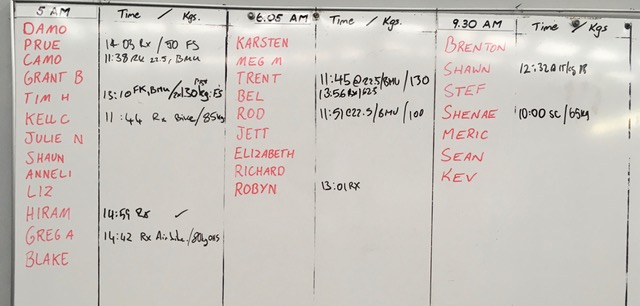 5 AM Time / Kgs.
DAMO
PRUE 14:03 Rx / 50 FS
CAMO 11:38 RX 22.5, BMU
GRANT B
TIM H 13:10 FK, BMU / 130kg FS
KELL C 11:44 Rx / 85kg
JULIE N
SHAUN
ANNELI
LIZ
HIRAM 14:59 Rx ✓
GREG A 14:42 Rx / 80kg
BLAKE
6.05 AM Time / Kgs.
KARSTEN
MEG M
TRENT 11:45 @ 22.5/BMU / 130
BEL 13:56 Rx / 62.5
ROD 11:51 @22.5/BMU / 100
JETT
ELIZABETH
RICHARD
ROBYN 13:01 RX
9.30 AM Time / Kgs
BRENTON
SHAWN 12:32
STEF
SHENAE 10:00 SC / 65kg
MERIC
SEAN
KEV